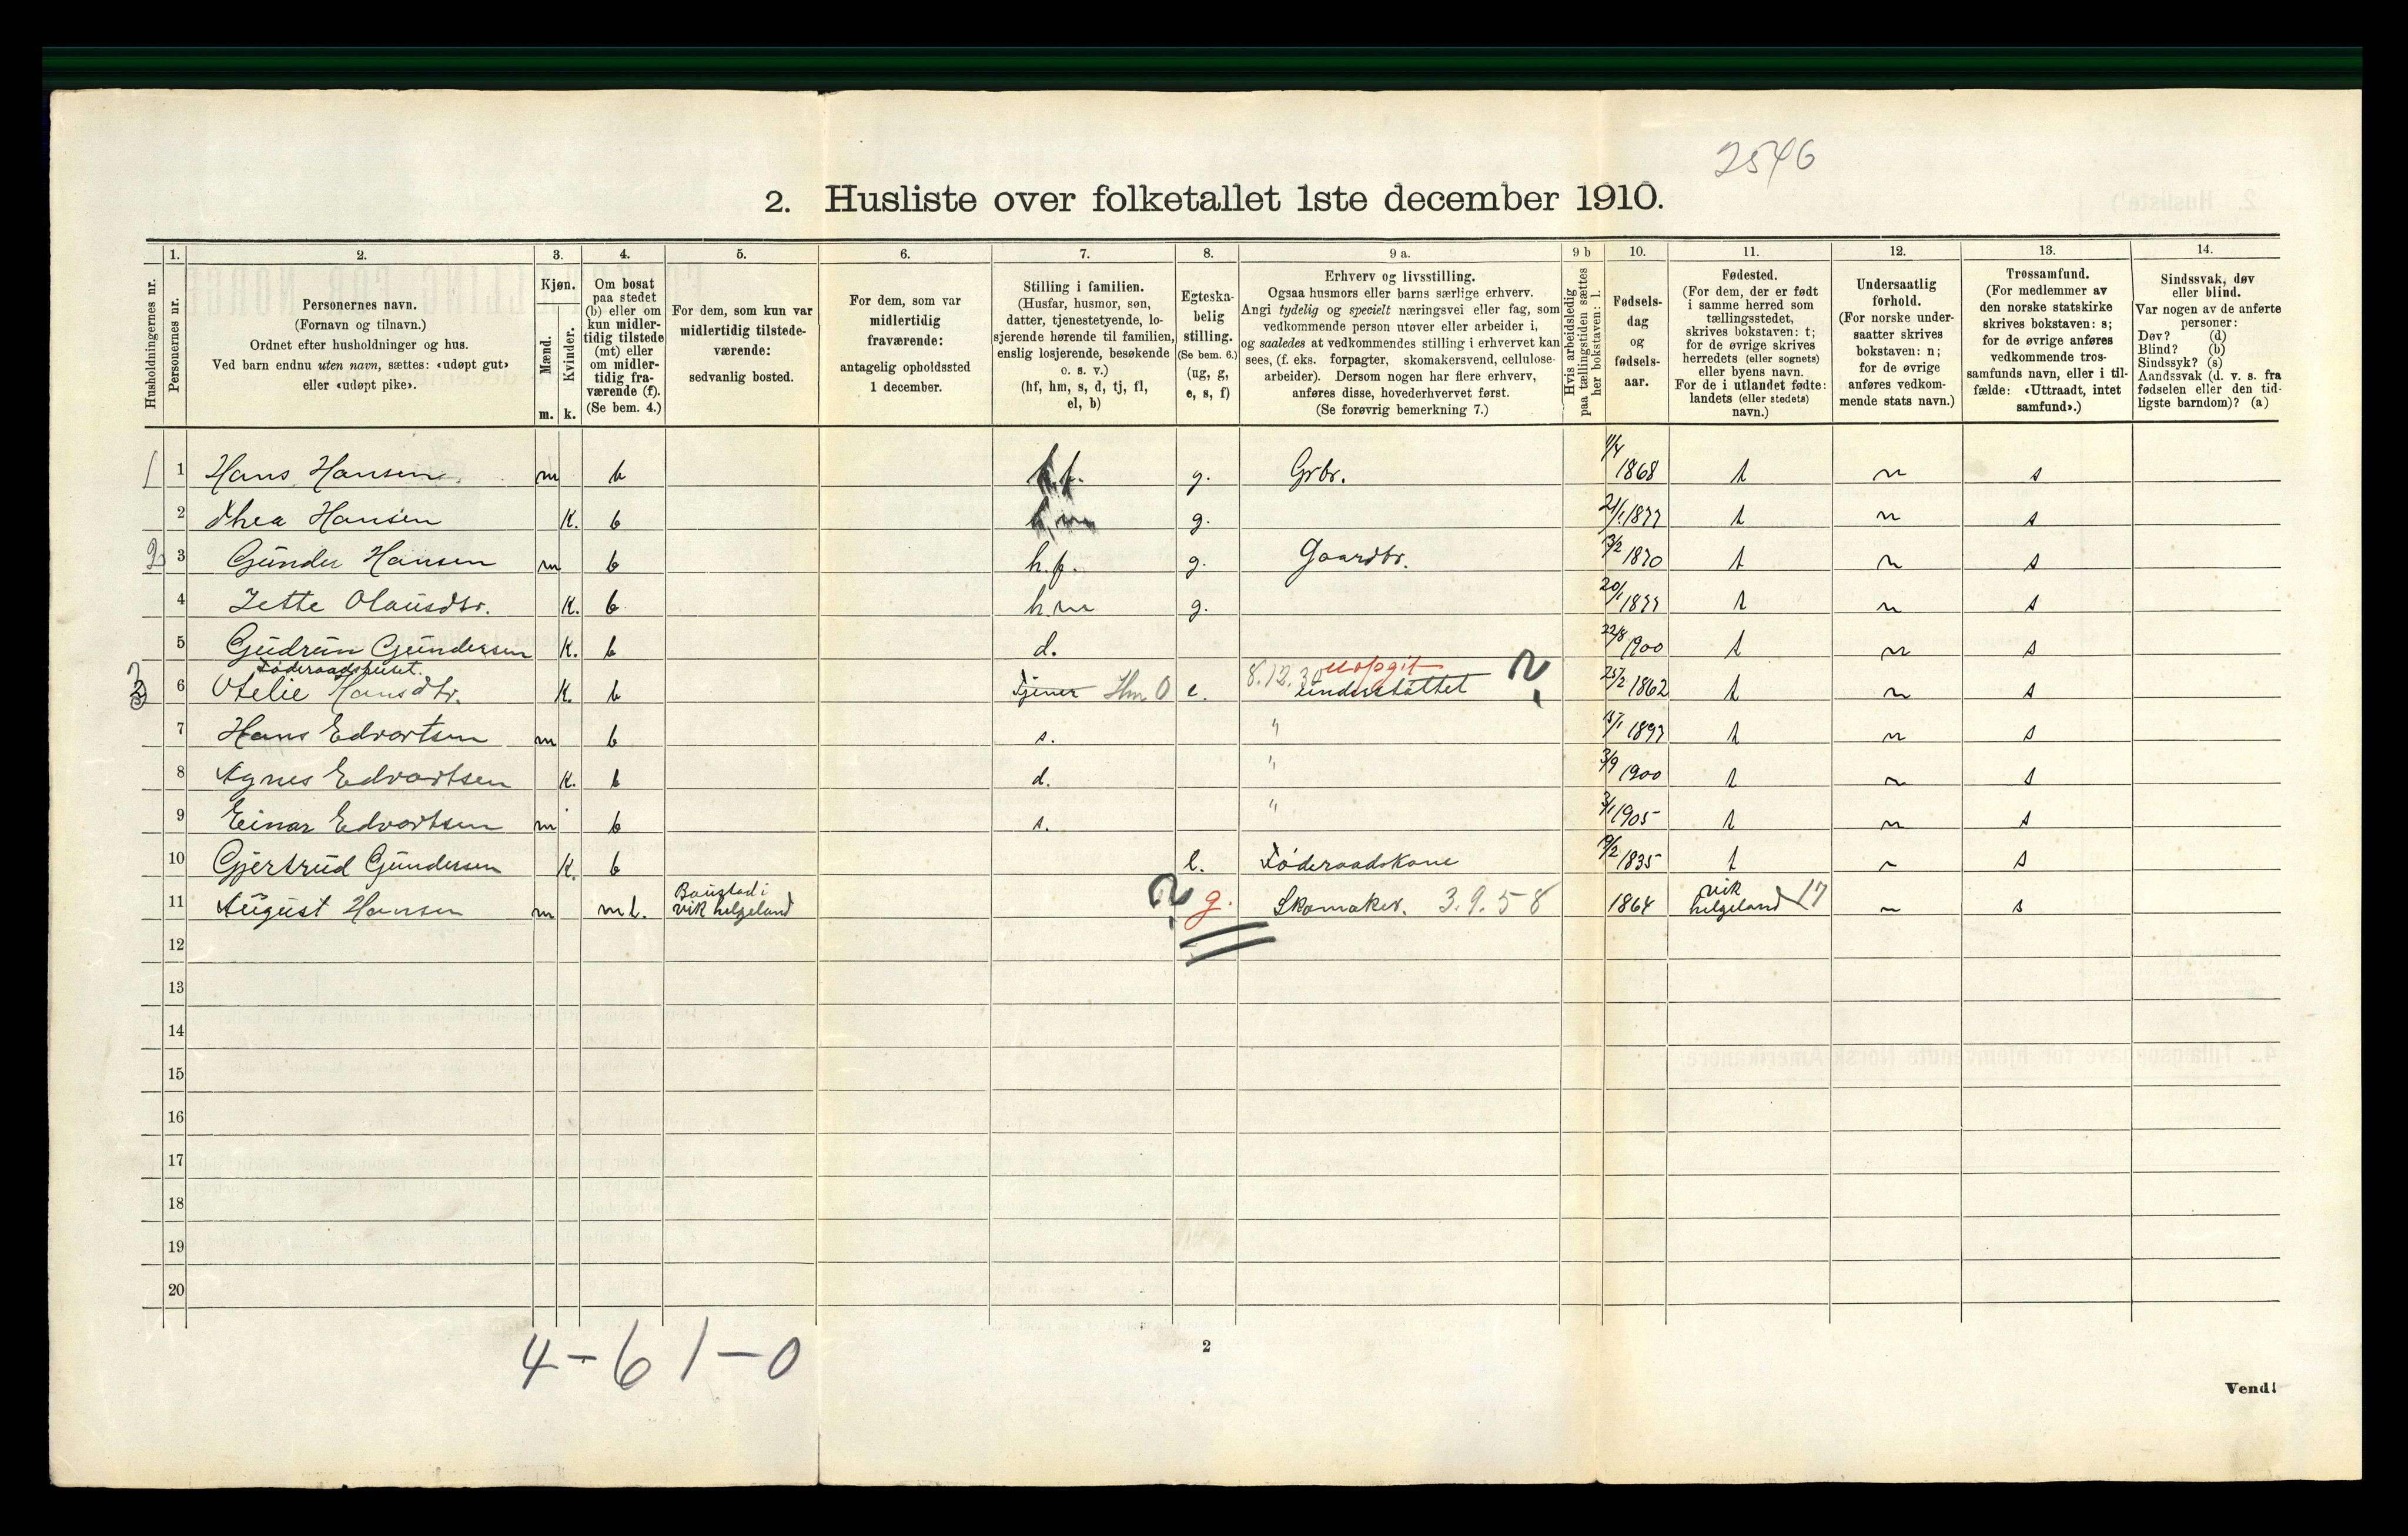 2546
2. Husliste over folketallet 1ste december 1910.
Husholdningernes nr.
1. Personernes nr.
2. Personernes navn. (Fornavn og tilnavn.) Ordnet efter husholdninger og hus. Ved barn endnu uten navn, sættes: «udøpt gut» eller «udøpt pike».
3. Kjøn. Mænd. m. Kvinder. k.
4. Om bosat paa stedet (b) eller om kun midlertidig tilstede (mt) eller om midlertidig fraværende (f). (Se bem. 4.)
5. For dem, som kun var midlertidig tilstedeværende: sedvanlig bosted.
6. For dem, som var midlertidig fraværende: antagelig opholdssted 1 december.
7. Stilling i familien. (Husfar, husmor, søn, datter, tjenestetyende, losjerende hørende til familien, enslig losjerende, besøkende o. s. v.) (hf, hm, s, d, tj, fl, el, b)
8. Egteskabelig stilling. (Se bem. 6.) (ug, g, e, s, f)
9 a. Erhverv og livsstilling. Ogsaa husmors eller barns særlige erhverv. Angi tydelig og specielt næringsvei eller fag, som vedkommende person utøver eller arbeider i, og saaledes at vedkommendes stilling i erhvervet kan sees, (f. eks. forpagter, skomakersvend, cellulosearbeider). Dersom nogen har flere erhverv, anføres disse, hovederhvervet først. (Se forøvrig bemerkning 7.)
9 b Hvis arbeidsledig paa tællingstiden sættes her bokstaven: l.
10. Fødselsdag og fødselsaar.
11. Fødested. (For dem, der er født i samme herred som tællingsstedet, skrives bokstaven: t; for de øvrige skrives herredets (eller sognets) eller byens navn. For de i utlandet fødte: landets (eller stedets) navn.)
12. Undersaatlig forhold. (For norske undersaatter skrives bokstaven: n; for de øvrige anføres vedkommende stats navn.)
13. Trossamfund. (For medlemmer av den norske statskirke skrives bokstaven: s; for de øvrige anføres vedkommende trossamfunds navn, eller i tilfælde: «Uttraadt, intet samfund».)
14. Sindssvak, døv eller blind. Var nogen av de anførte personer: Døv? (d) Blind? (b) Sindssyk? (s) Aandssvak (d. v. s. fra fødselen eller den tidligste barndom)? (a)
1 1 Hans Hansen m b h.f. g. Grbr. 1/4 1868 t n s
2 Thea Hansen K. b h.m g. 21/1 1877 t n s
2 3 Gunder Hansen m b h.f. g. Gaardbr. 13/2 1870 t n s
4 Jette Olausdtr. K. b h.m g. 20/1 1877 t n s
5 Gudrun Gundersen K. b d. 22/8 1900 t n s
Föderaadshuset.
3 6 Otelie Hansdtr. K. b Tjener Hm O e. 8.12.30 uopgit understøttet ? 25/2 1862 t n s
7 Hans Edvartsen m b s. " 15/1 1897 t n s
8 Agnes Edvartsen K. b d. " 3/9 1900 t n s
9 Einar Edvartsen m b s. " 3/1 1905 t n s
10 Gjertrud Gundersen K. b e. Föderaadskone 9/2 1835 t n s
11 August Hansen m m t. Baustad i vik helgeland ? g. Skomaker. 3.9.58 1864 vik helgeland 17 n s
12
13
14
15
16
17
18
19
20
4-6 1-0
2
Vend!